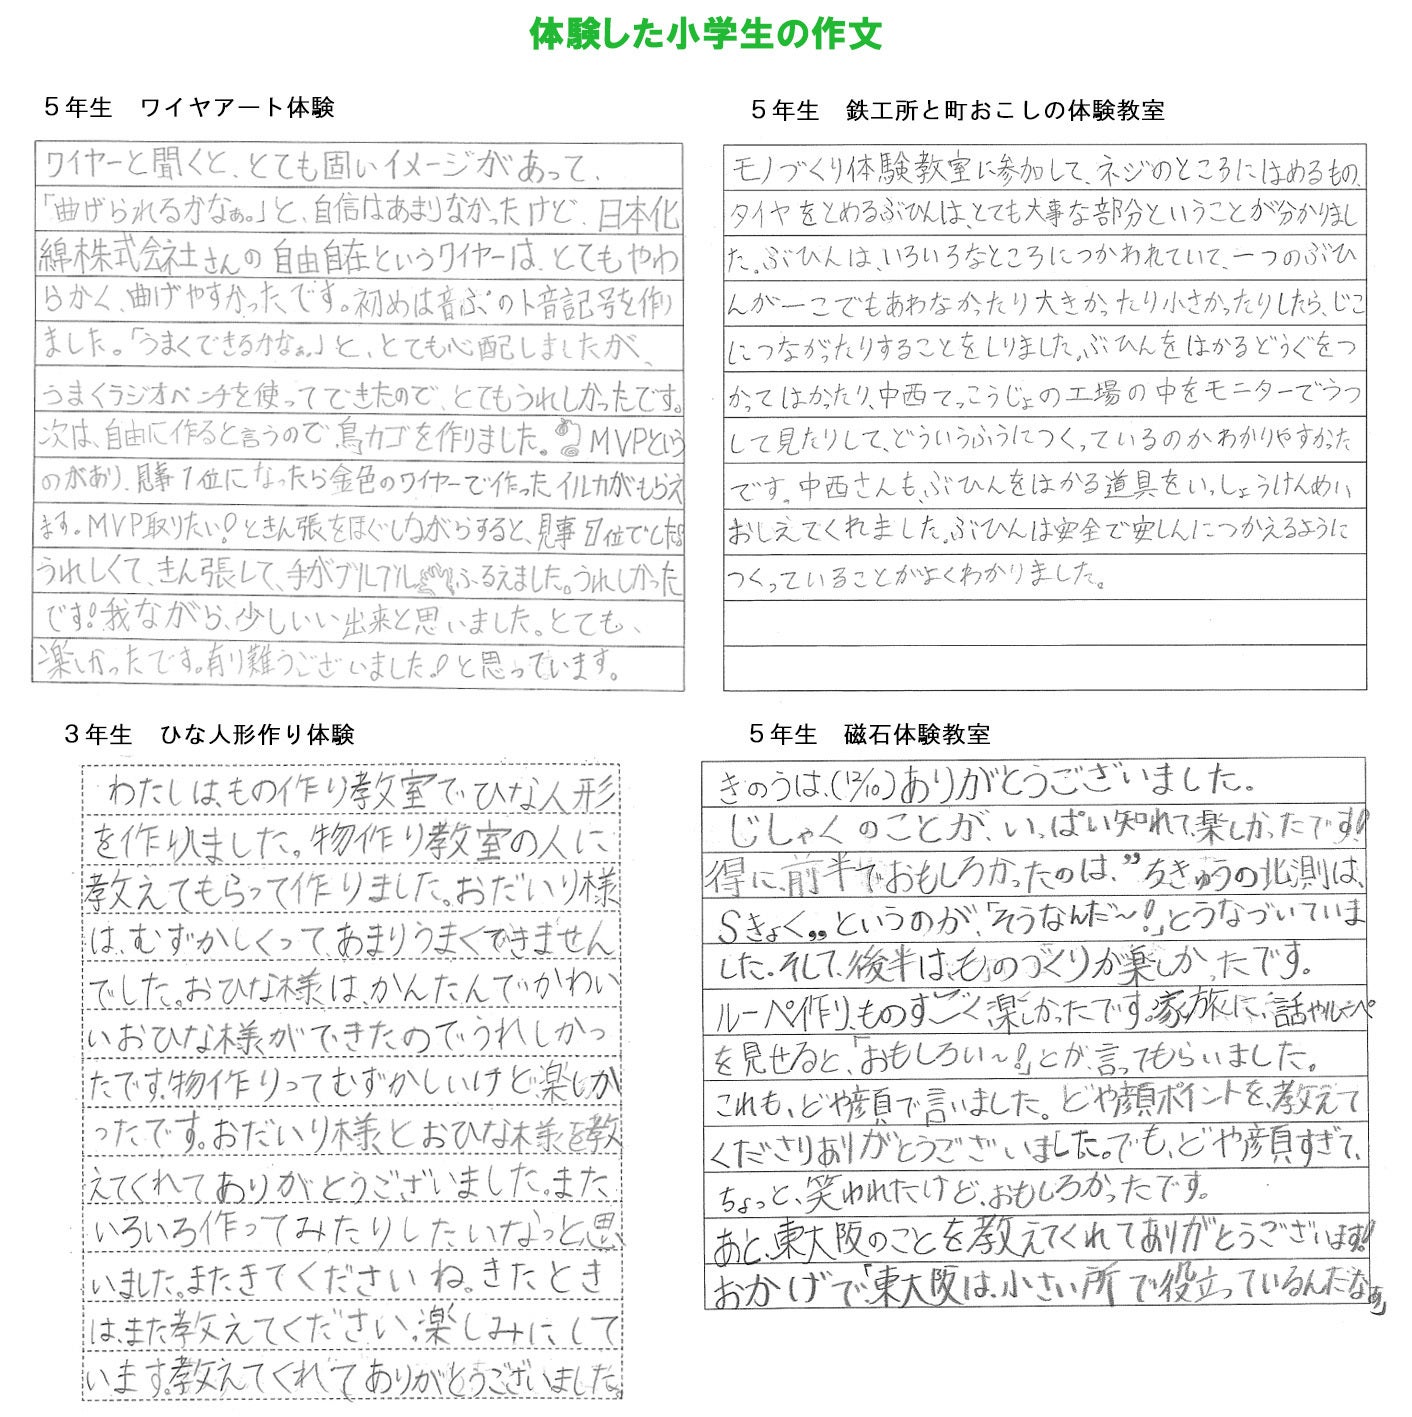 体験した小学生の作文
5年生　ワイヤアート体験
ワイヤーと聞くと、とても固いイメージがあって、
「曲げられるかなぁ。」と、自信はあまりなかったけど、日本化
綿株式会社さんの自由自在というワイヤーは、とてもやわ
らかく、曲げやすかったです。初めは音ぷのト音記号を作り
ました。「うまくできるかなぁ。」と、とても心配しましたが、
うまくラジオペンチを使ってできたので、とてもうれしかったです。
次は、自由に作ると言うので、鳥カゴを作りました。MVPという
のがあり、見事1位になったら金色のワイヤーで作ったイルカがもらえ
ます。MVP取りたい!ときん張をほぐしながらすると、見事1位でした。
うれしくて、きん張して、手がブルブルふるえました。うれしかった
です!我ながら、少しいい出来と思いました。とても、
楽しかったです。有り難うございました!と思っています。
5年生　鉄工所と町おこしの体験教室
モノづくり体験教室に参加して、ネジのところにはめるもの、
タイヤをとめるぶひんは、とても大事な部分ということが分かりまし
た。ぶひんは、いろいろなところにつかわれていて、一つのぶひ
んが一こでもあわなかったり大きかったり小さかったりしたら、じこ
につながったりすることをしりました。ぶひんをはかるどうぐをつ
かってはかったり、中西てっこうじょの工場の中をモニターでうつ
して見たりして、どういうふうにつくっているのかわかりやすかった
です。中西さんも、ぶひんをはかる道具をいっしょうけんめい
おしえてくれました。ぶひんは安全で安しんにつかえるように
つくっていることがよくわかりました。
3年生　ひな人形作り体験
わたしは、もの作り教室でひな人形
を作りました。物作り教室の人に
教えてもらって作りました。おだいり様
は、むずかしくって、あまりうまくできません
でした。おひな様は、かんたんでかわい
いおひな様ができたので、うれしかっ
たです。物作りってむずかしいけど、楽しか
ったです。おだいり様とおひな様を教
えてくれてありがとうございました。また
いろいろ作ってみたりしたいなっと思
いました。またきてくださいね。きたとき
は、また教えてください。楽しみにして
います。教えてくれてありがとうございました。
5年生　磁石体験教室
きのうは、(12/10)ありがとうございました。
じしゃくのことが、いっぱい知れて、楽しかったです!
得に、前半でおもしろかったのは、”ちきゅうの北測は、
Sきょく„というのが、「そうなんだ～!」とうなづいていま
した。そして、後半は、ものづくりが楽しかったです。
ルーペ作り、ものすごく楽しかったです。家族に、話やルーペ
を見せると、「おもしろい～!」とか、言ってもらいました。
これも、どや顔で言いました。どや顔ポイントを、教えて
くださりありがとうございました。でも、どや顔すぎて、
ちょっと、笑われたけど、おもしろかったです。
あと、東大阪のことを教えてくれてありがとうございます!
おかげで、「東大阪は、小さい所で役立っているんだなぁ」